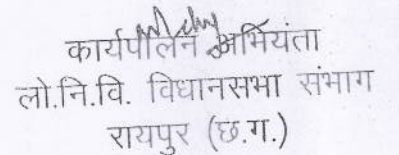 कार्यपालन अभियंता
लो.नि.वि. विधानसभा संभाग
रायपुर (छ.ग.)